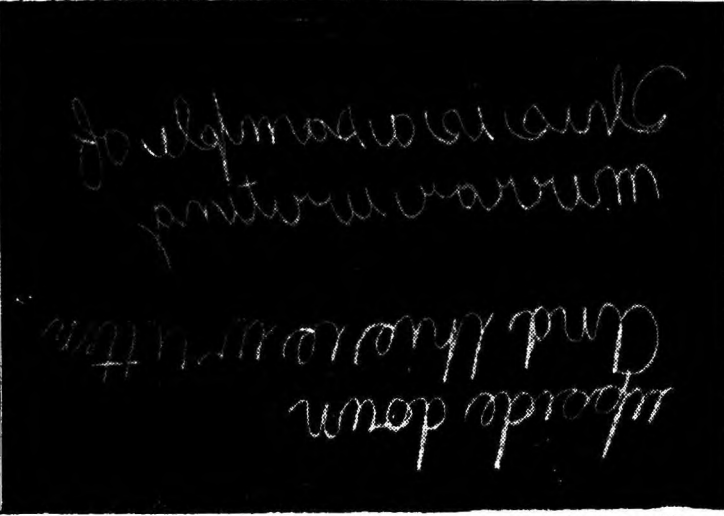 This is a sample of
mirror writing
And this is written
upside down